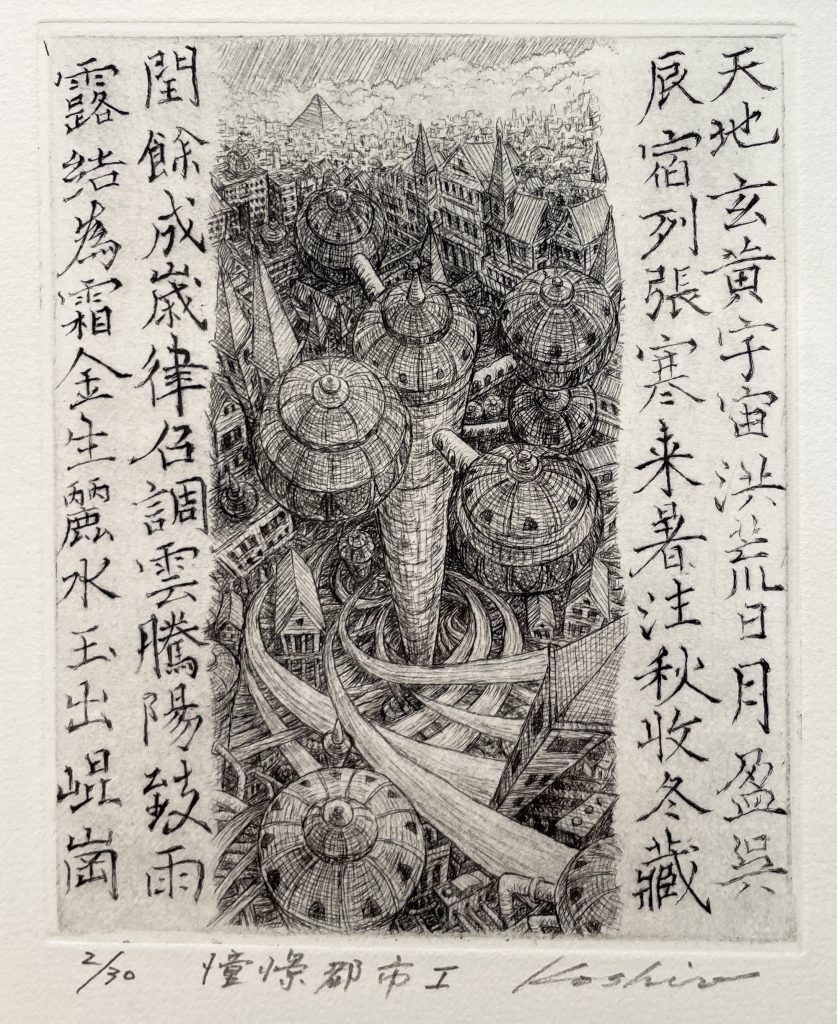 天地玄黄宇宙洪荒日月盈呉
辰宿列張寒来暑注秋收冬藏
閏餘成歳律召調雲騰陽致雨
露結為霜金生麗水玉出崐崗
2/30 憧憬都市I Koshiro